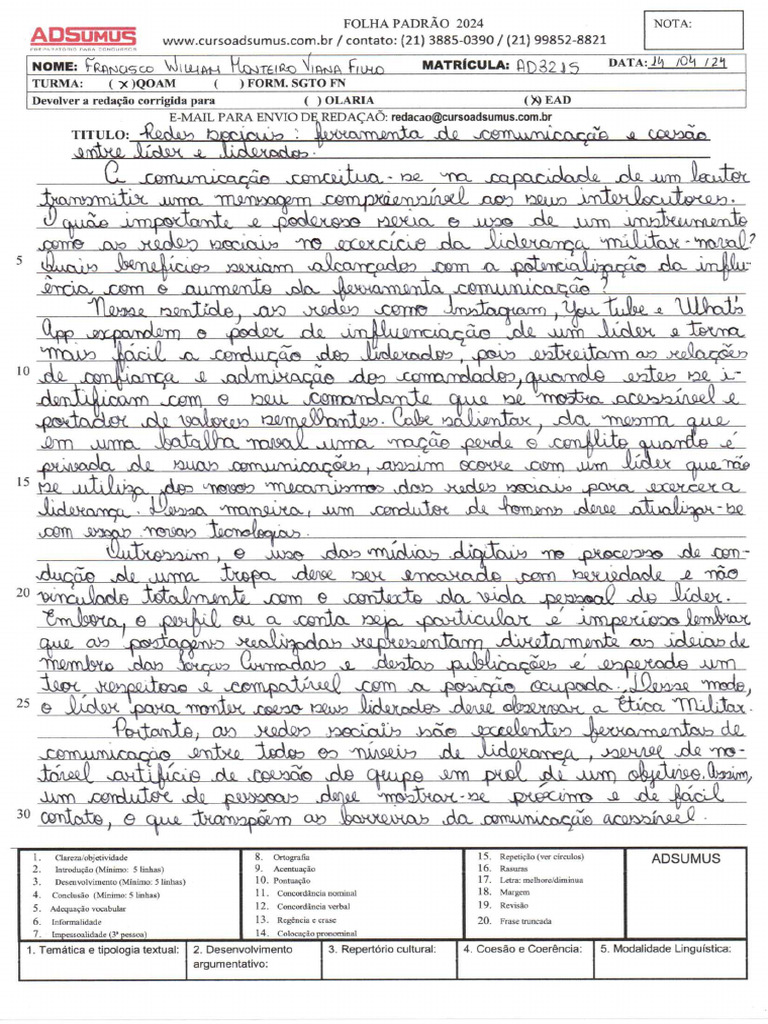 ADSUMUS
PREPARATÓRIO PARA CONCURSOS
FOLHA PADRÃO 2024
www.cursoadsumus.com.br / contato: (21) 3885-0390 / (21) 99852-8821
NOTA:
NOME: FRANCISCO WILLIAM MONTEIRO VIANA FILHO MATRÍCULA: AD3215 DATA: 14 /04 /24
TURMA: (x)QOAM ( ) FORM. SGTO FN
Devolver a redação corrigida para ( ) OLARIA (x) EAD
E-MAIL PARA ENVIO DE REDAÇAÕ: redacao@cursoadsumus.com.br
TITULO: Redes sociais: ferramenta de comunicação e coesão
entre líder e liderados.
A comunicação conceitua-se na capacidade de um locutor
transmitir uma mensagem compreensível aos seus interlocutores.
O quão importante e poderoso seria o uso de um instrumento
como as redes sociais no exercício da liderança militar-naval?
5 Quais benefícios seriam alcançados com a potencialização da influ-
ência com o aumento da ferramenta comunicação?
Nesse sentido, as redes como Instagram, You tube e What's
App expandem o poder de influenciação de um líder e torna
mais fácil a condução dos liderados, pois estreitam as relações
10 de confiança e admiração dos comandados, quando estes se i-
dentificam com o seu comandante que se mostra acessível e
portador de valores semelhantes. Cabe salientar, da mesma que
em uma batalha naval uma nação perde o conflito quando é
privada de suas comunicações, assim ocorre com um líder que não
15 se utiliza dos novos mecanismos das redes sociais para exercer a
liderança. Dessa maneira, um condutor de homens deve atualizar-se
com essas novas tecnologias.
Outrossim, o uso das mídias digitais no processo de con-
dução de uma tropa deve ser encarado com seriedade e não
20 vinculado totalmente com o contexto da vida pessoal do líder.
Embora, o perfil ou a conta seja particular é imperioso lembrar
que as postagens realizadas representam diretamente as ideias de
membro das Forças Armadas e destas publicações é esperado um
teor respeitoso e compatível com a posição ocupada. Desse modo,
25 o líder para manter coeso seus liderados deve observar a Ética Militar.
Portanto, as redes sociais são excelentes ferramentas de
comunicação entre todos os níveis de liderança, serve de no-
tável artifício de coesão do grupo em prol de um objetivo. Assim,
um condutor de pessoas deve mostrar-se próximo e de fácil
30 contato, o que transpõem as barreiras da comunicação acessível.
1. Clareza/objetividade
2. Introdução (Mínimo: 5 linhas)
3. Desenvolvimento (Mínimo: 5 linhas)
4. Conclusão (Mínimo: 5 linhas)
5. Adequação vocabular
6. Informalidade
7. Impessoalidade (3ª pessoa)
8. Ortografia
9. Acentuação
10. Pontuação
11. Concordância nominal
12. Concordância verbal
13. Regência e crase
14. Colocação pronominal
15. Repetição (ver círculos)
16. Rasuras
17. Letra: melhore/diminua
18. Margem
19. Revisão
20. Frase truncada
ADSUMUS
1. Temática e tipologia textual:
2. Desenvolvimento
argumentativo:
3. Repertório cultural:
4. Coesão e Coerência:
5. Modalidade Linguística: